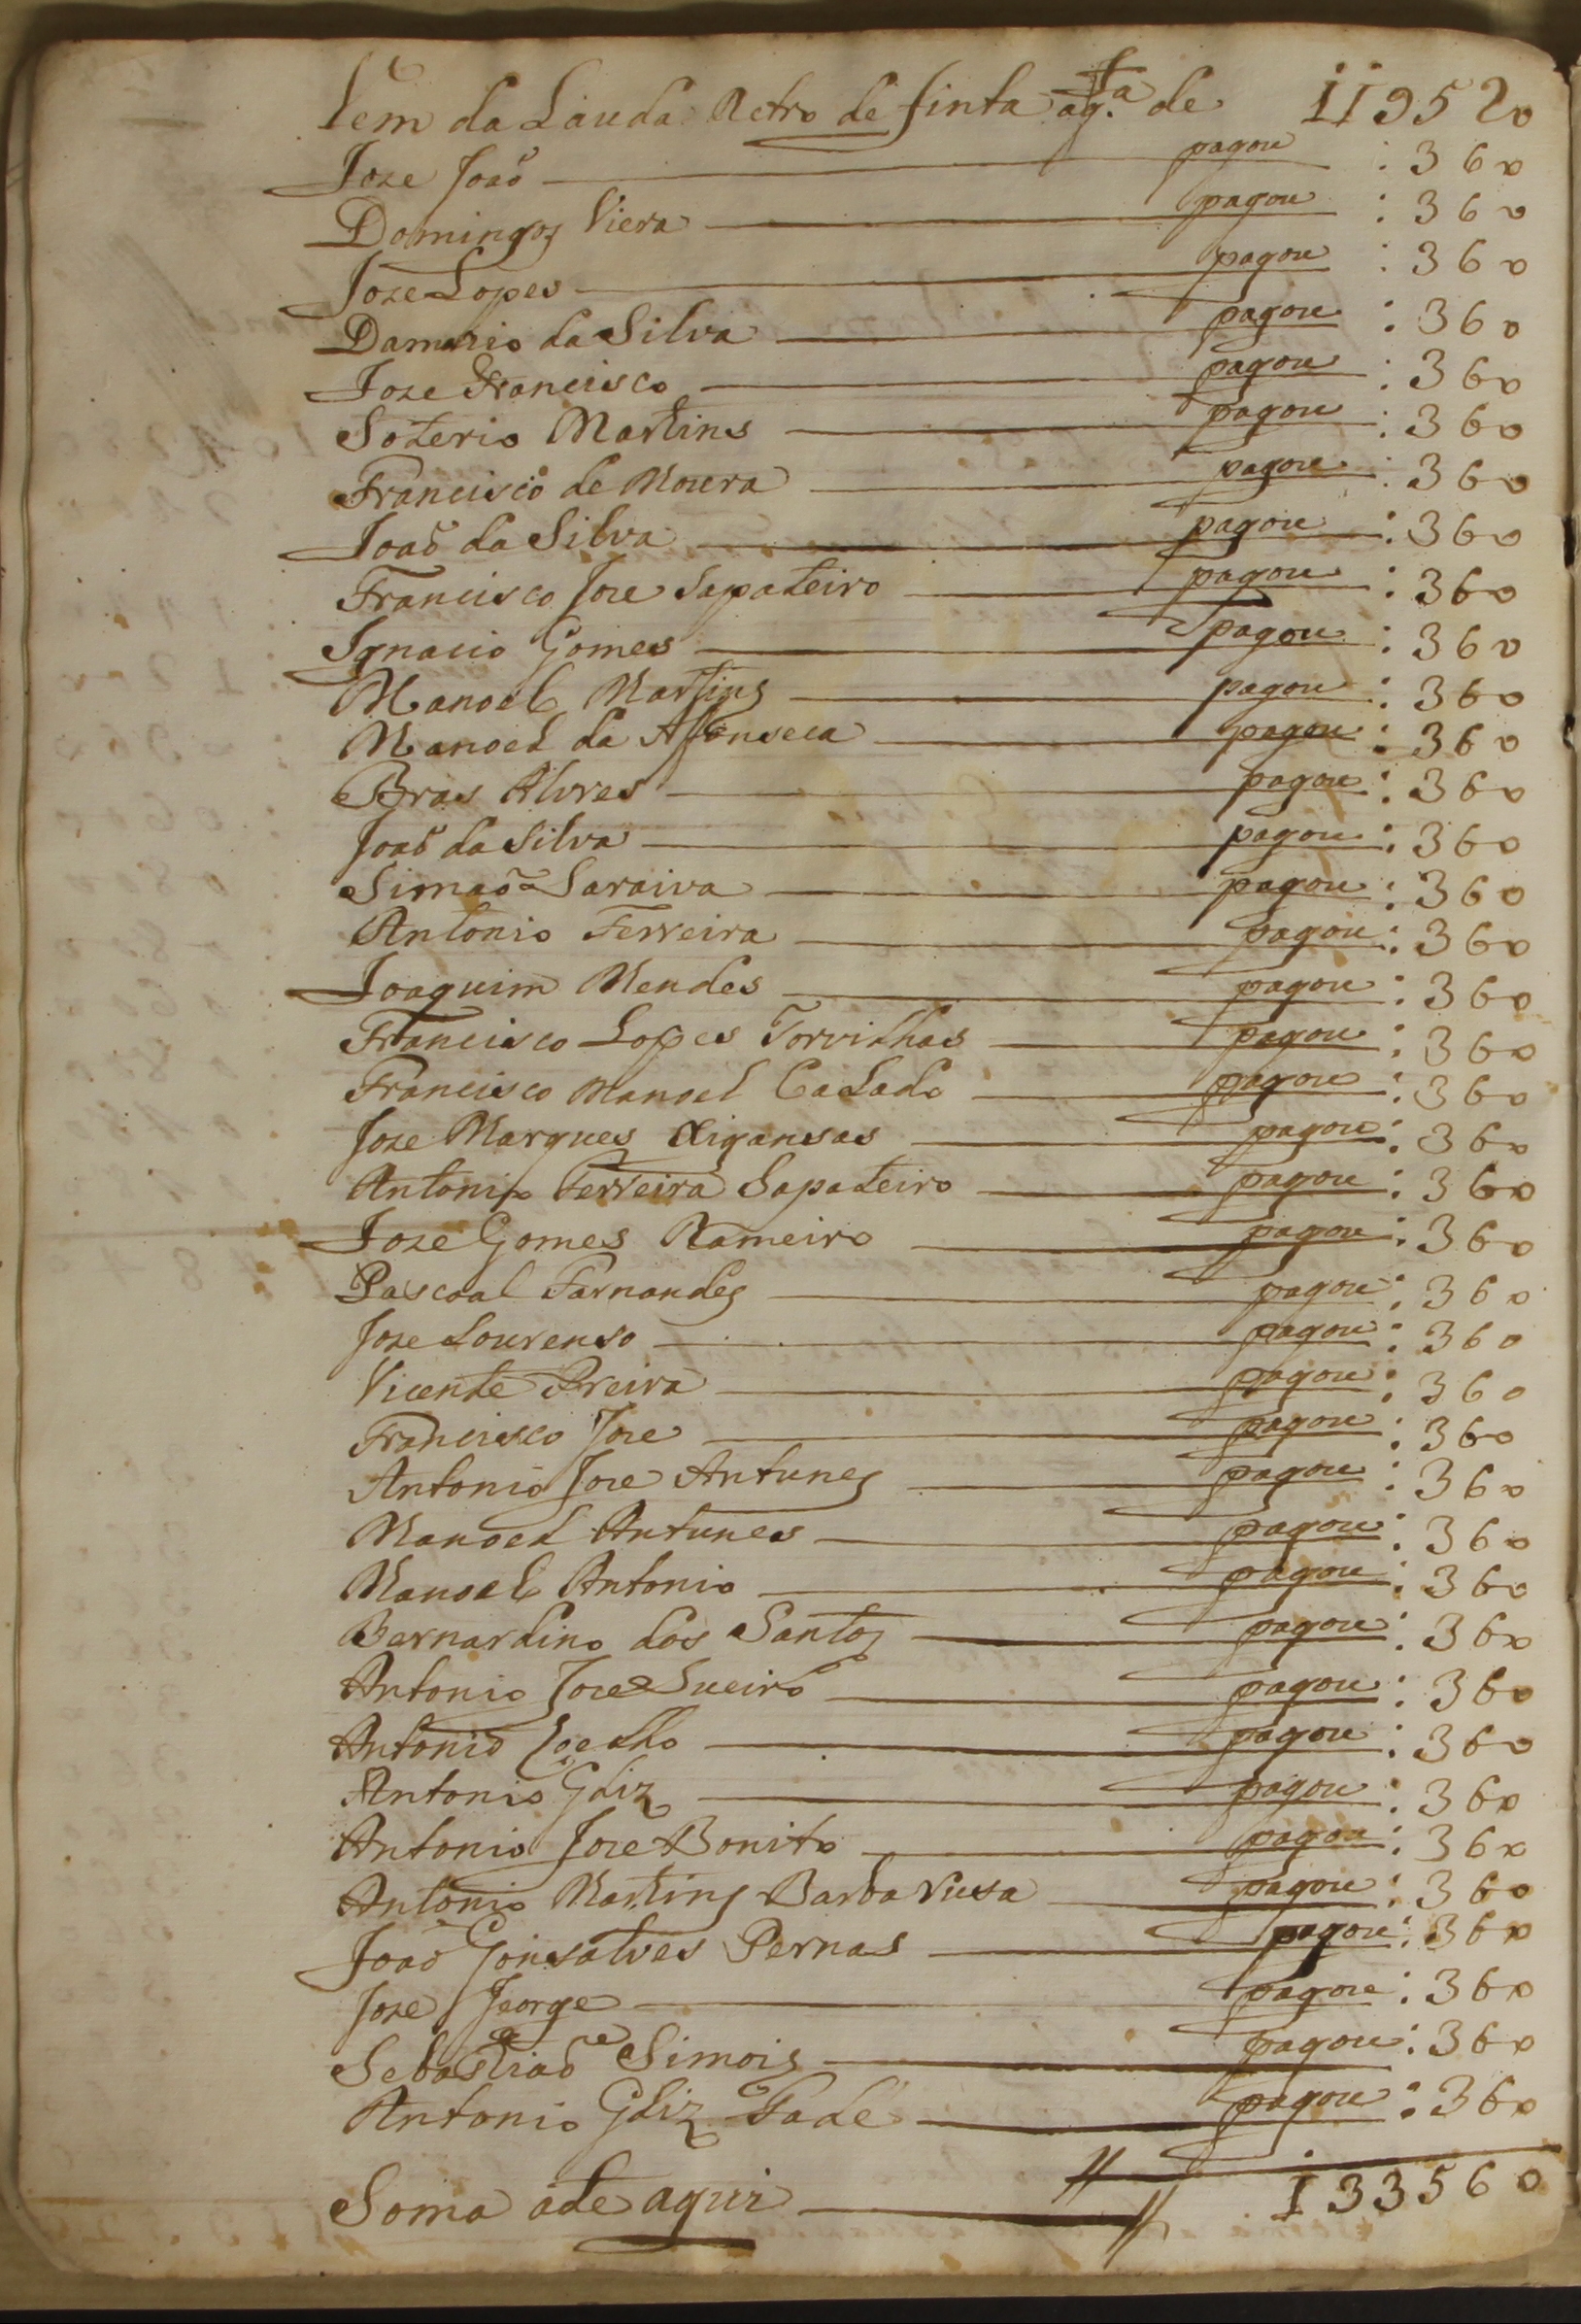 Vem da Lauda Retro de finta agta de 119520
Joze Joaõ pagou : 360
Domingos Viera pagou : 360
Joze Lopes pagou : 360
Damazio da Silva pagou : 360
Joze Francisco pagou : 360
Soterio Martins pagou : 360
Francisco de Moura pagou : 360
Joaõ da Silva pagou : 360
Francisco Joze Sapateiro pagou : 360
Ignacio Gomes pagou : 360
Manoel Martins pagou : 360
Manoel da Affonseca pagou : 360
Bras Alvres pagou : 360
Joaõ da Silva pagou : 360
Simaõ Saraiva pagou : 360
Antonio Ferreira pagou : 360
Joaquim Mendes pagou : 360
Francisco Lopes Torvilhas pagou : 360
Francisco Manoel Calado pagou : 360
Joze Marques pagou : 360
Antonio Ferreira Sapateiro pagou : 360
Joze Gomes Rameiro pagou : 360
Pascoal Farnandes pagou : 360
Joze Lourenso pagou : 360
Vicente Preira pagou : 360
Francisco Joze pagou : 360
Antonio Joze Antunes pagou : 360
Manoel Antunes pagou : 360
Manoel Antonio pagou : 360
Bernardino dos Santos pagou : 360
Antonio Joze Sueiro pagou : 360
Antonio Coelho pagou : 360
Antonio Glz pagou : 360
Antonio Joze Bonito pagou : 360
Antonio Martins Barba Rusa pagou : 360
Joaõ Gonsalves Pernas pagou : 360
Joze Jeorge pagou : 360
Sebastiaõ Simois pagou : 360
Antonio Glz Pade pagou : 360
Soma ate aqui 133560